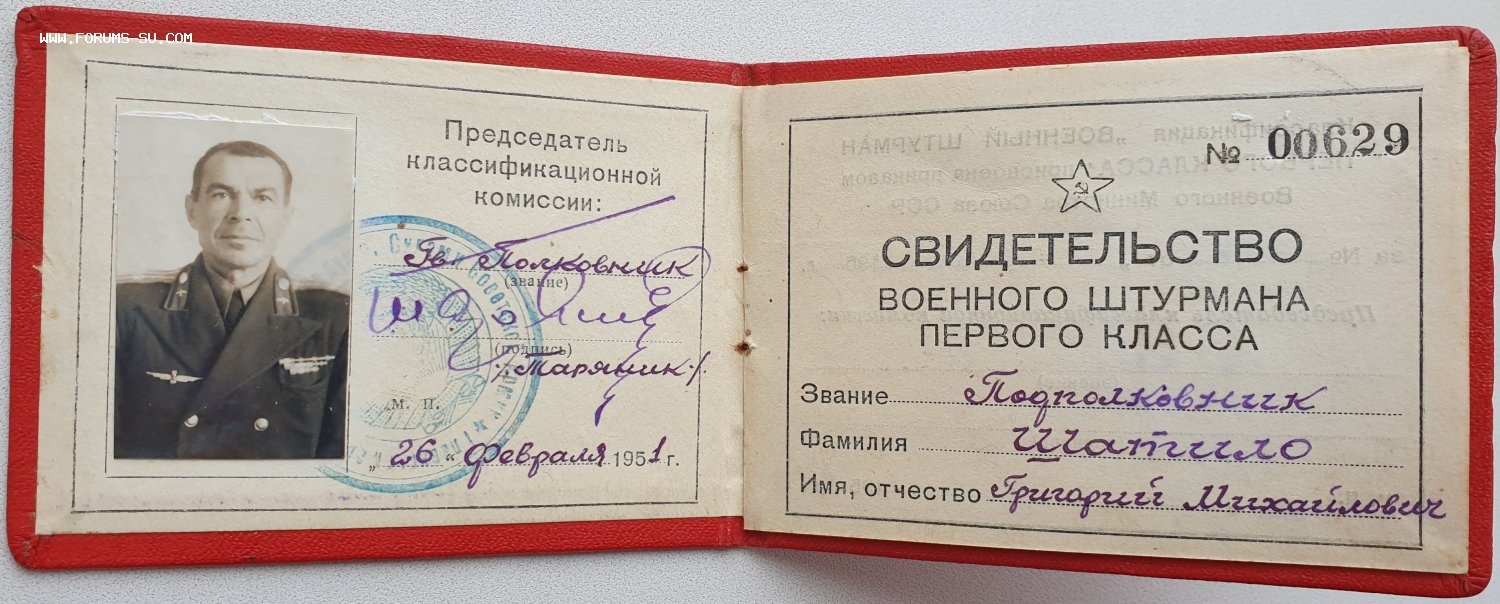 WWW.FORUMS-SU.COM
Председатель
классификационной
комиссии:
Гв. Полковник
(звание)
(подпись)
/Таряник/.
М. П.
„26“ февраля 1951 г.
№ 00629
СВИДЕТЕЛЬСТВО
ВОЕННОГО ШТУРМАНА
ПЕРВОГО КЛАССА
Звание Подполковник
Фамилия Шатило
Имя, отчество Григорий Михайлович